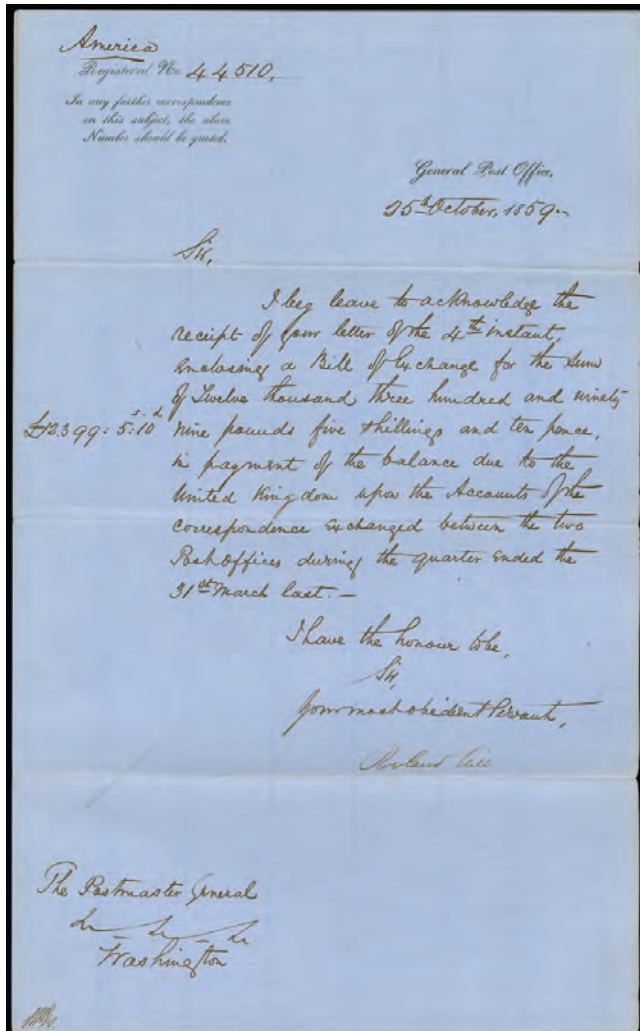 America
Registered No. 44510.
In any further correspondence
on this subject, the above
Number should be quoted.
General Post Office,
25th October, 1859.
Sir,
I beg leave to acknowledge the
receipt of your letter of the 4th instant,
enclosing a Bill of Exchange for the sum
of Twelve thousand three hundred and ninety
£12.399: 5: 10 s. d
nine pounds five shillings and ten pence,
in payment of the balance due to the
United Kingdom upon the Accounts of the
correspondence exchanged between the two
Post Offices during the quarter ended the
31st March last.—
I have the honour to be,
Sir,
Your most obedient Servant,
Rowland Hill
The Postmaster General
&c &c &c
Washington